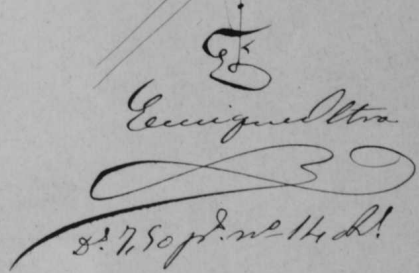 Enrique Oltra
Ds. 7,50 pr. nº 14 dl.